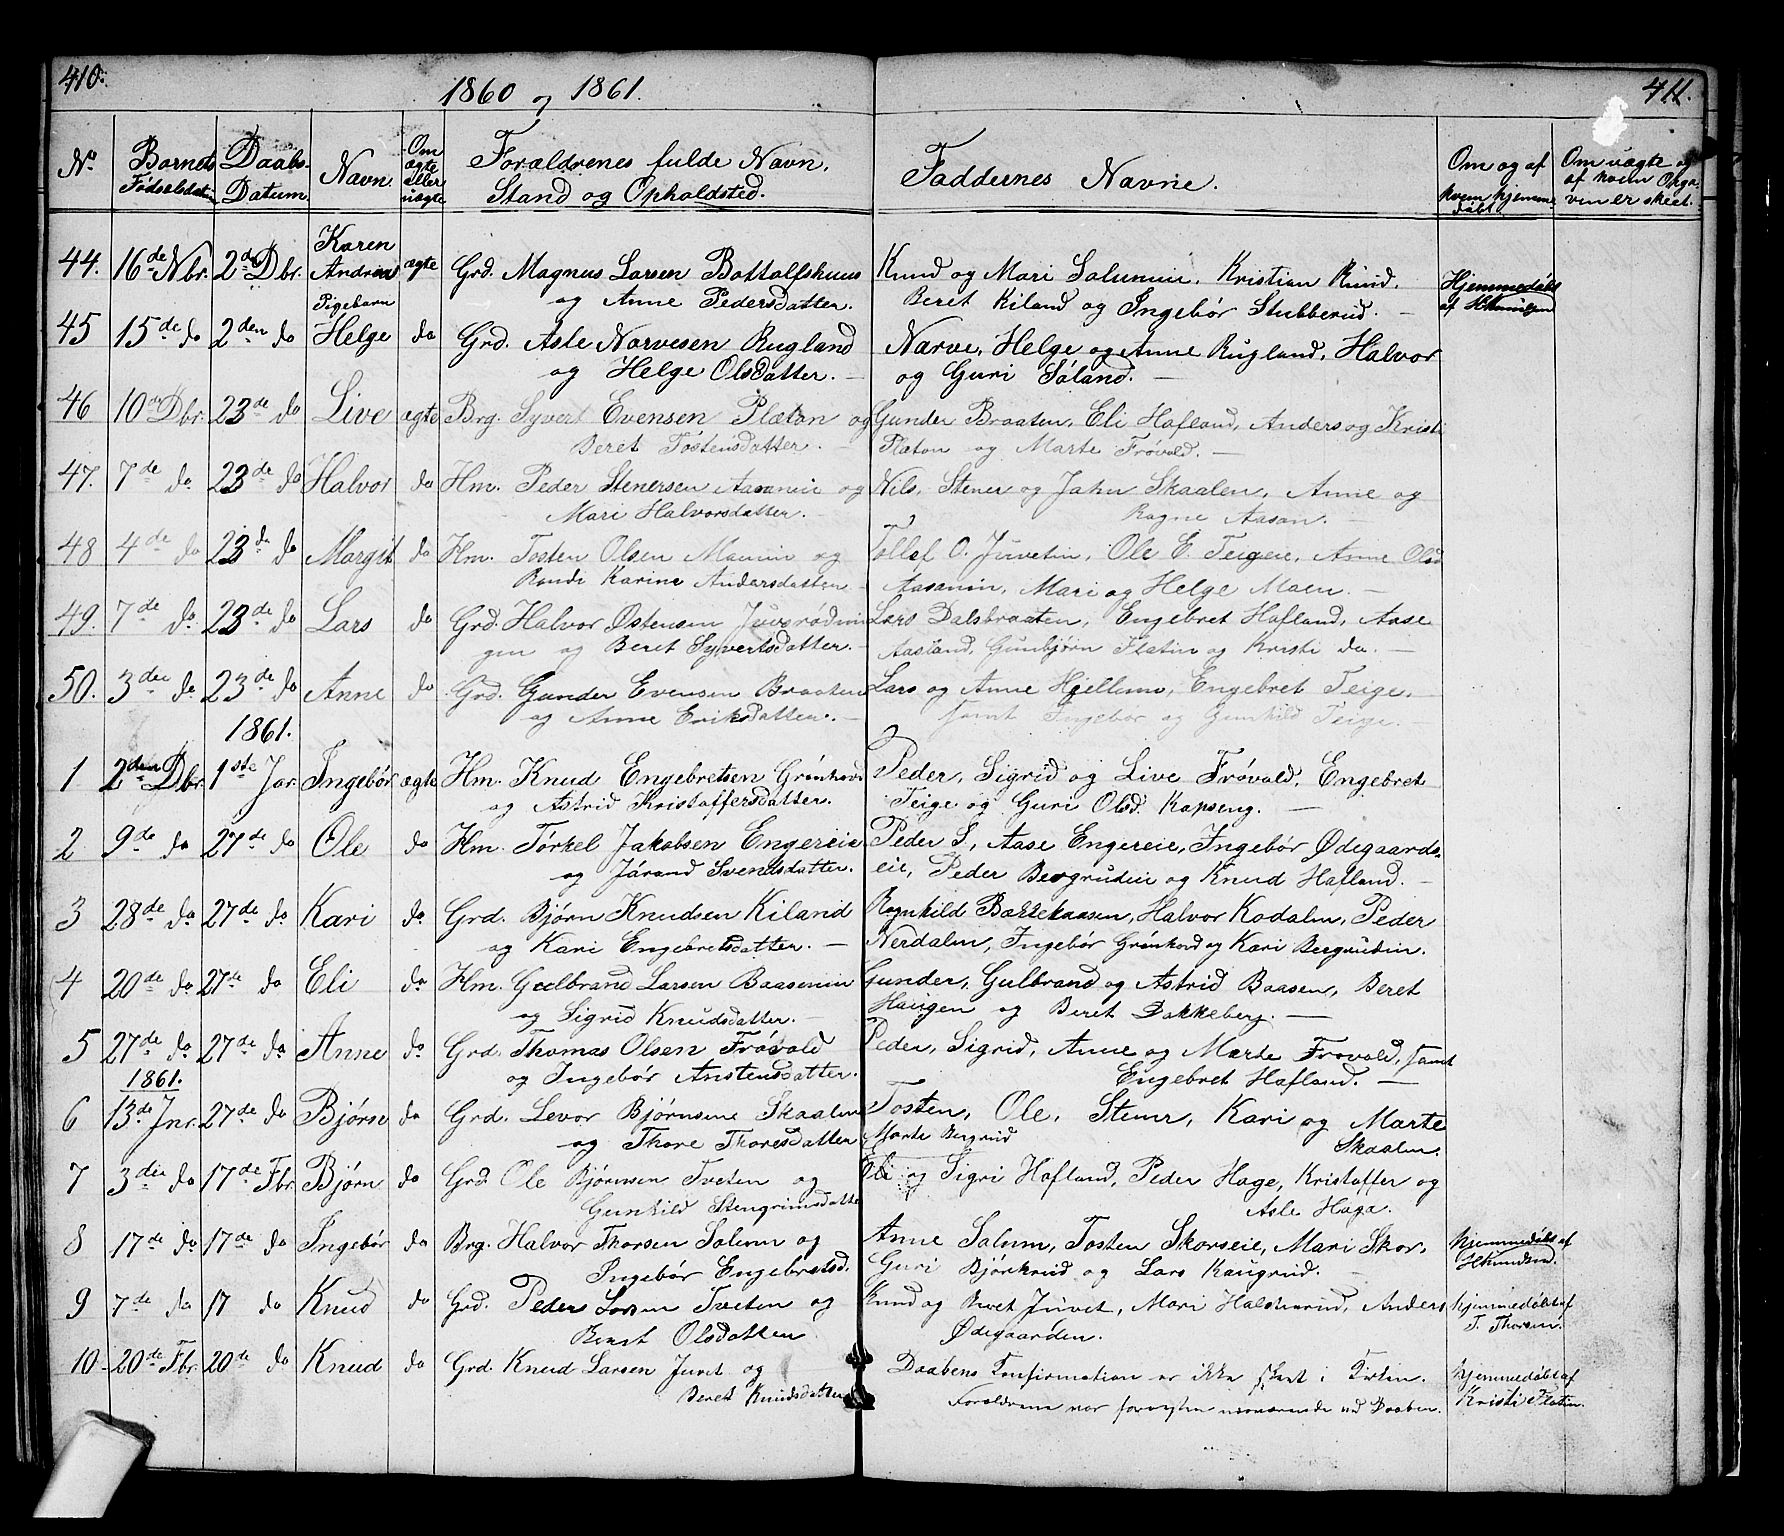 410.
1860 og 1861.
411.
No
Barnets Fødselsdatum
Daabs Datum
Navn
Om ægte eller uægte
Forældrenes fulde Navn, Stand og Opholdsted.
Faddernes Navne.
Om og af hvem hjemmedøbt
Om uægte og af hvem Opgaven er skeet.
44. 16de Nbr. 2den Dbr. Karen Andrine Pigebarn ægte Grd. Magnus Larsen Bottolfshuus Knud og Mari Solumeie. Kristian Ruud. Hjemmedøbt
og Anne Pedersdatter. Beret Kiland og Ingebór Stubberud. —
45 15de do 2den do Helge do Grd. Asle Narvesen Rugland Narve, Helge og Anne Rugland, Halvor
og Helge Olsdatter. — og Guri Søland. —
46 10de Dbr. 23de do Live ægte Brg. Syvert Evensen Plætan og Gunder Braaten, Eli Hafland, Anders og Kristi
Beret Tostensdatter. — Plæton og Marte Frövold. —
47. 7de do 23de do Halvor do Hm. Peder Stenersen Aasanie og Nils, Stener og Jahn Skaalen, Anne og
Mari Halvorsdatter. — Ragne Aasan. —
48 4de do 23de do Margit do Hm. Tosten Olsen Maeneie og Tollef O. Juvetin, Ole E. Teigeie, Anne Olsd
Randi Karine Andersdatter — Aasanin, Mari og Helge Moen. —
49. 7de do 23de do Lars do Grd. Halvor Østensen Lars Dalsbraaten, Engebret Hafland, Aase
gen og Beret Syvertsdatter. — Aasland, Gunbjörn Flatin og Kristi do. —
50. 3die do 23de do Anne do Grd. Gunder Evensen Braaten Lars og Anne Hjellum, Engebret Teige,
og Anne Eriksdatter. — samt Ingebor og Gunhild Teige.
1861.
1 2den Dbr. 1ste Jar. Ingebór ægte Hm. Knud Engebretsen Grönhovd Peder, Sigrid og Live Frövold, Engebret
og Astrid Kristoffersdatter. Teige og Guri Olsd. Kapseng. —
2 9de do 27de do Ole do Hm. Tórkel Jakobsen Engereie Peder S, Aase Engereie, Ingebór Ødegaards-
og Jórand Svendsdatter. eie, Peder Bergrudeie og Knud Hafland. —
3 28de do 27de do Kari do Grd. Björn Knudsen Kiland Ragnhild Bakkehaasen, Halvor Kodalen, Peder
og Kari Engebretsdatter. — Nerdalen, Ingebór Grönhovd og Kari Bergrudin.
4 20de do 27de do Eli do Hm. Gulbrand Larsen Baasenin Gunder, Gulbrand og Astrid Baasen, Beret
og Sigrid Knudsdatter. — Haugen og Beret Bakkeberg. —
5 27de do 27de do Anne do Grd. Thomas Olsen Frövold Peder, Sigrid, Anne og Marte Frövold, samt
og Ingebór Anstensdatter. Engebret Hafland. —
1861.
6 13de Jnr. 27de do Björn do Grd. Levor Björnsene Skaalen Tosten, Ole, Stener, Kari og Marte
og Thore Thoresdatter Marte Bergrud Skaalen.
7 3die do 17de Fbr. Björn do Grd Ole Björnsen Tveten og Eli og Sigri Hafland, Peder Hage, Kristoffer og
Gunhild Stengrimsdatter Asle Haga.
8 17de do 17de do Ingebór do Brg. Halvor Thorsen Solum og Anne Solum, Tosten Skorseie, Mari Skor, hjemmedøbt af
Ingebór Engebretsd. Guri Björkrud og Lars Kaugrud. — HKnudsen.
9 7de do 17 do Knud do Grd. Peder Larsen Tveten og Knud og Beret Juvet, Mari Halstenrud, Anders hjemmedøbt af
Beret Olsdatter Ødegaarden. T. Thorsen.
10- 20de Fbr. 20de do Knud do Grd. Knud Larsen Juvet og Daabens Confirmation er ikke skeet i Kirken. hjemmedøbt af
Beret Knudsdatter Forældrene var forresten nærværende ved Daaben. Kristi Flatin.